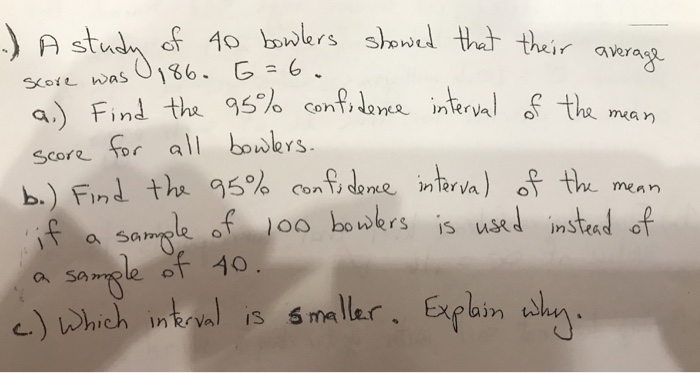 .) A study of 40 bowlers showed that their average
score was 186. σ = 6.
a.) Find the 95% confidence interval of the mean
score for all bowlers.
b.) Find the 95% confidence interval of the mean
if a sample of 100 bowlers is used instead of
a sample of 40.
c.) Which interval is smaller. Explain why.